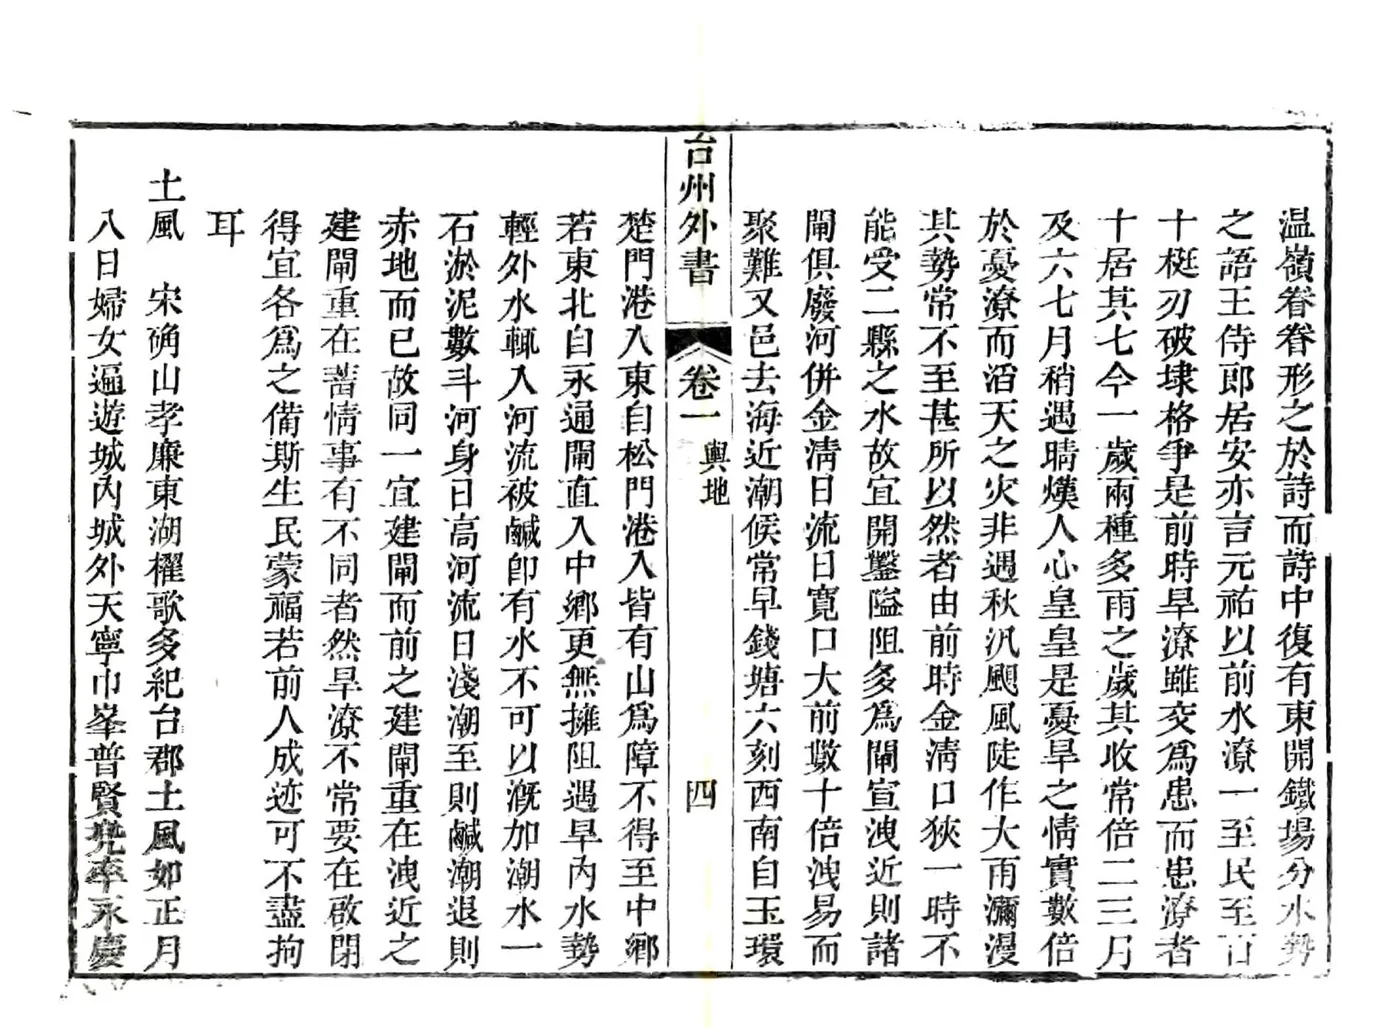 温嶺眷眷形之於詩而詩中復有東開鐵場分水勢
之語王侍郎居安亦言元祐以前水潦一至民至百
十梃刃破埭格爭是前時旱潦雖交爲患而患潦者
十居其七今一歲兩種多雨之歲其收常倍二三月
及六七月稍遇晴熯人心皇皇是憂旱之情實數倍
於憂潦而滔天之災非遇秋汛颶風陡作大雨瀰漫
其勢常不至甚所以然者由前時金清口狹一時不
能受二縣之水故宜開鑿隘阻多爲閘宣洩近則諸
閘俱廢河併金清日流日寬口大前數十倍洩易而
聚難又邑去海近潮候常早錢塘六刻西南自玉環
台州外書
卷一
輿地
四
楚門港入東自松門港入皆有山爲障不得至中鄉
若東北自永通閘直入中鄉更無擁阻遇旱內水勢
輕外水輒入河流被鹹卽有水不可以漑加潮水一
石淤泥數斗河身日高河流日淺潮至則鹹潮退則
赤地而已故同一宜建閘而前之建閘重在洩近之
建閘重在蓄情事有不同者然旱潦不常要在啟閉
得宜各爲之備斯生民蒙福若前人成迹可不盡拘
耳
土風　宋确山孝廉東湖櫂歌多紀台郡土風如正月
八日婦女遍遊城內城外天寧巾峯普賢兜率永慶